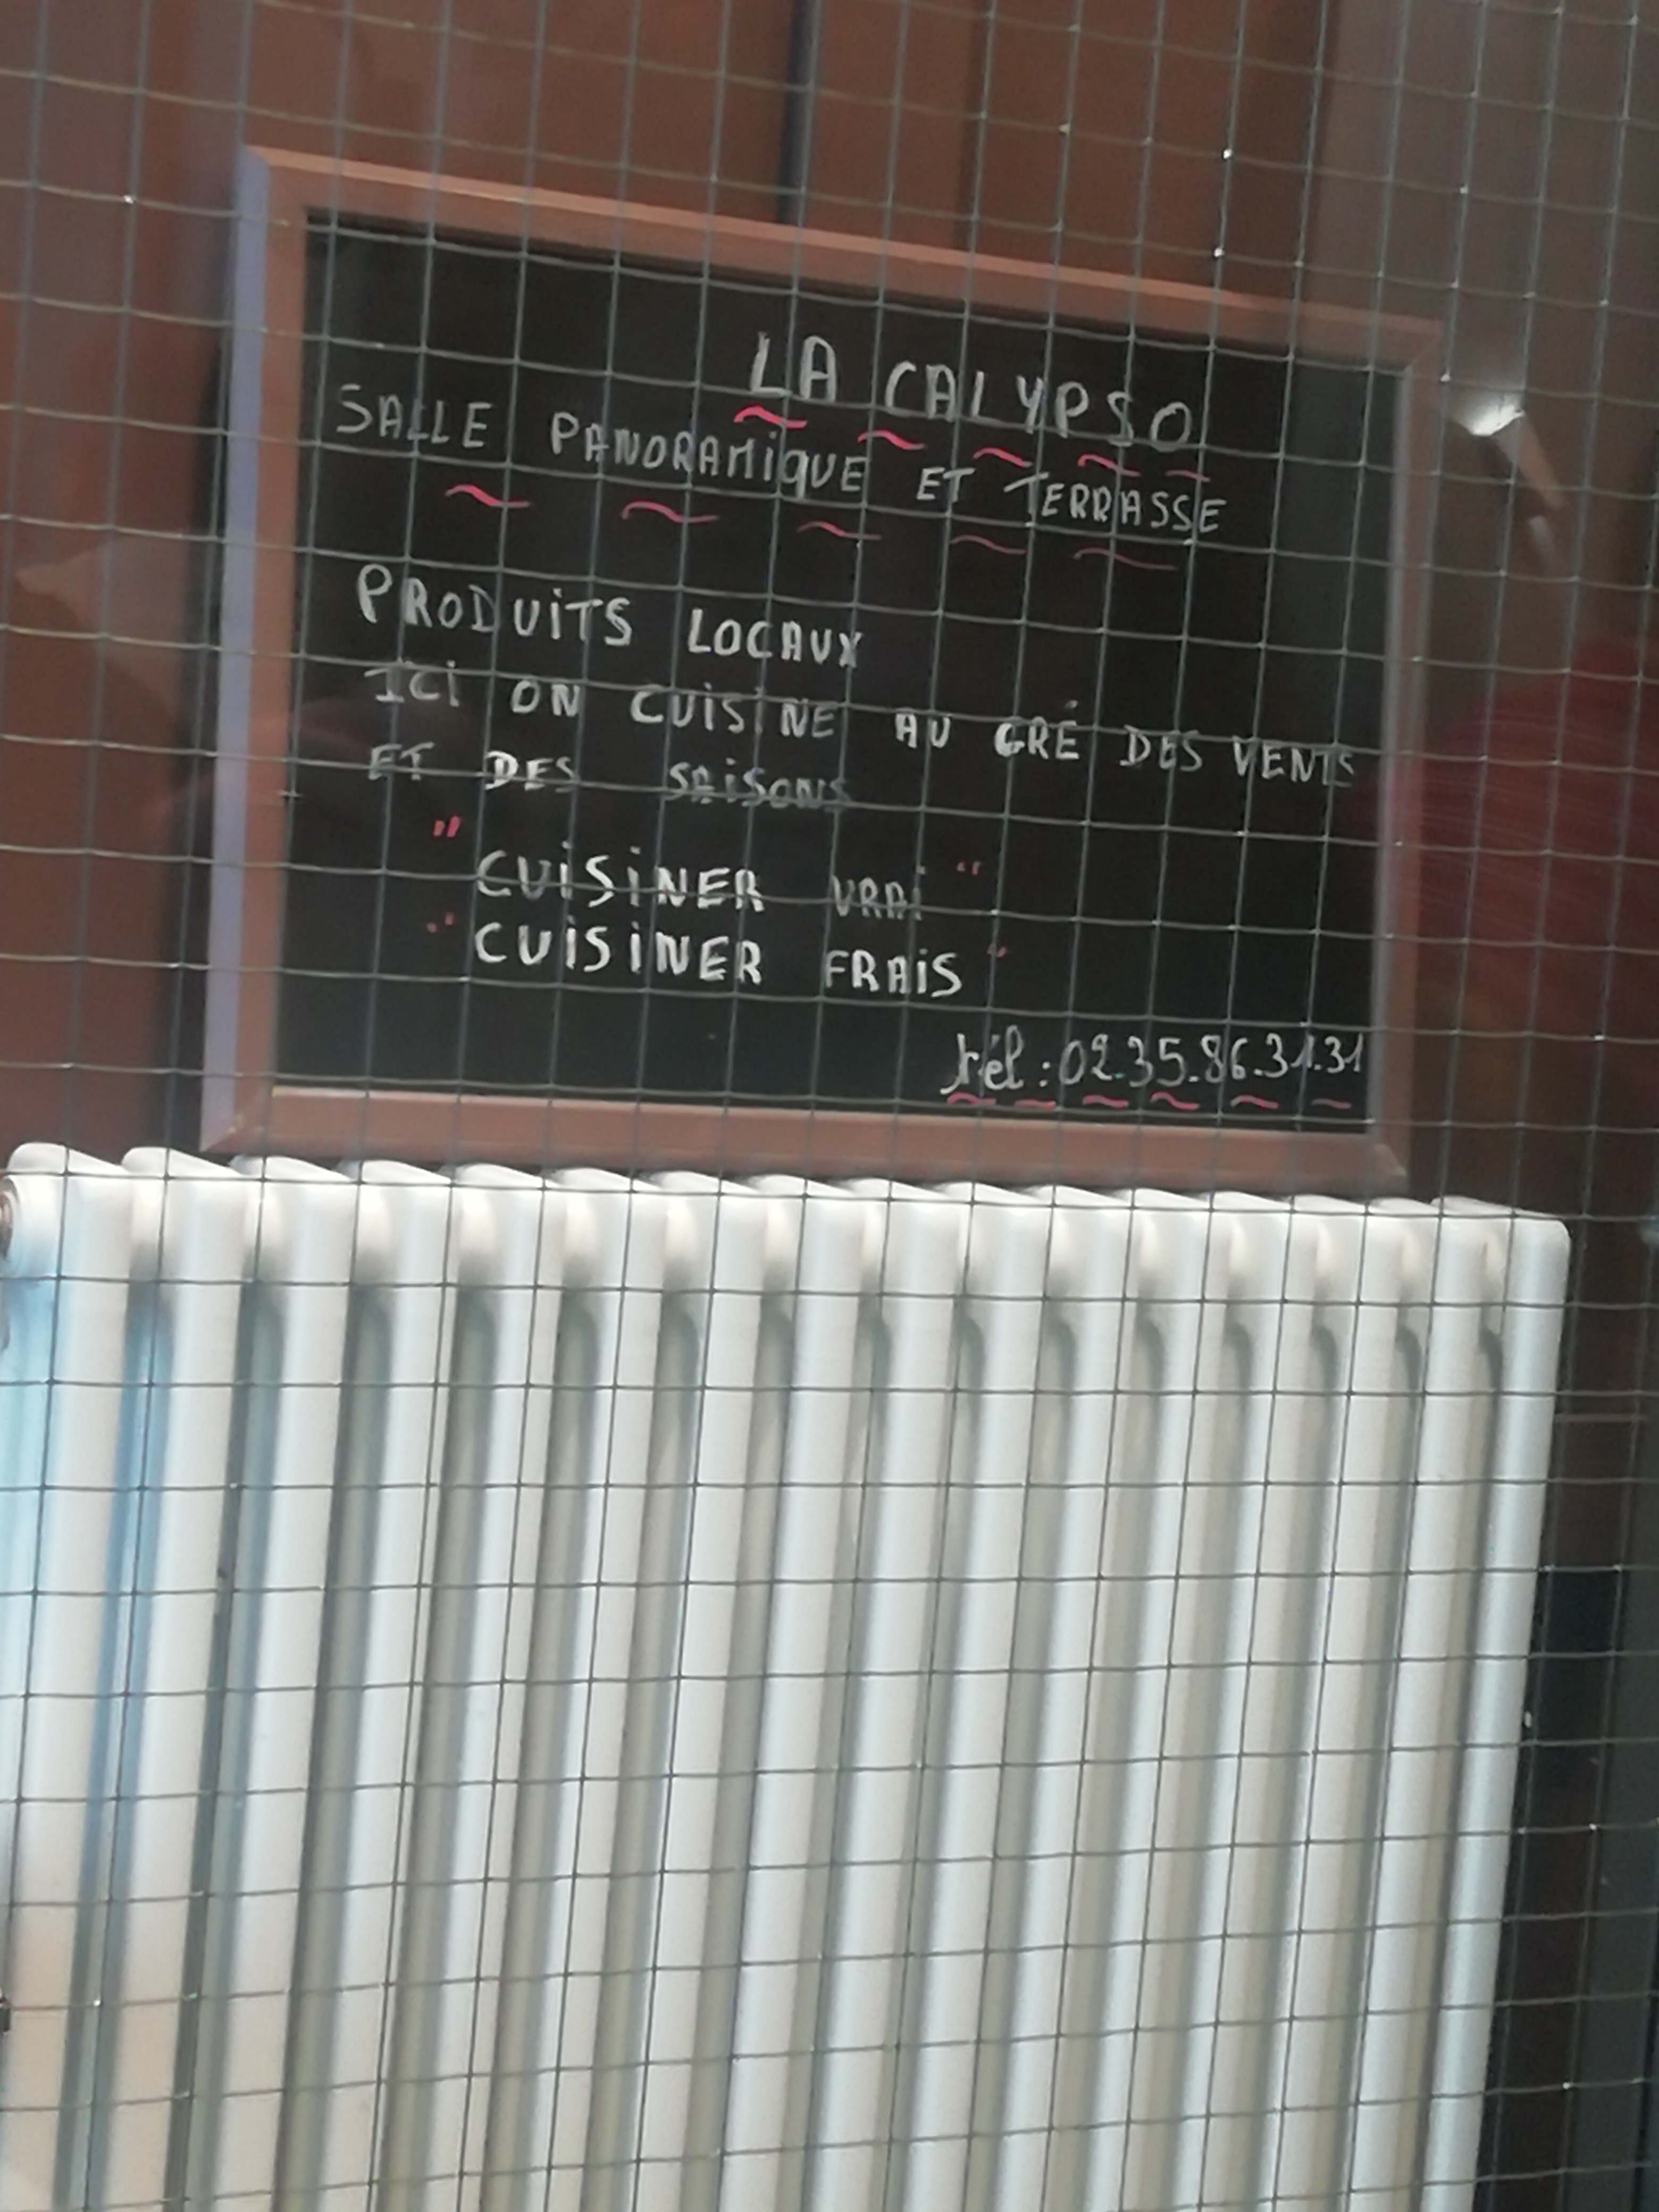 LA CALYPSO
SALLE PANORAMiQUE ET TERRASSE
PRODUiTS LOCAUX
ICi ON CUiSiNE AU GRÉ DES VENTS
ET DES SAiSONS
"CUiSiNER VRAi"
"CUiSiNER FRAiS"
tél : 02.35.86.31.31